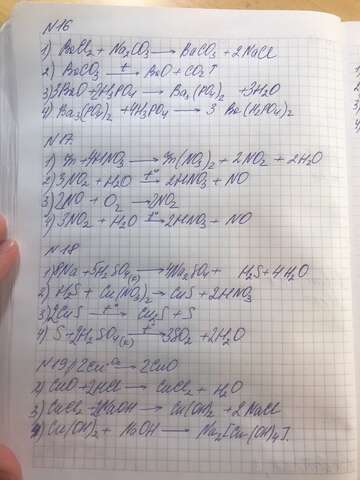 N16
1) BaCl2 + Na2CO3 → BaCO3 + 2NaCl
2) BaCO3 —t→ BaO + CO2↑
3) 3BaO + 2H3PO4 → Ba3(PO4)2 + 3H2O
4) Ba3(PO4)2 + 4H3PO4 → 3 Ba(H2PO4)2
N17
1) Zn + 4HNO3 → Zn(NO3)2 + 2NO2 + 2H2O
2) 3NO2 + H2O —t°→ 2HNO3 + NO
3) 2NO + O2 → 2NO2
4) 3NO2 + H2O —t°→ 2HNO3 + NO
N18
1) 8Na + 5H2SO4(к) → 4Na2SO4 + H2S + 4H2O
2) H2S + Cu(NO3)2 → CuS + 2HNO3
3) 2CuS —t°→ Cu2S + S
4) S + 2H2SO4(к) —t°→ 3SO2 + 2H2O
N19 1) 2Cu + O2 → 2CuO
2) CuO + 2HCl → CuCl2 + H2O
3) CuCl2 + 2NaOH → Cu(OH)2 + 2NaCl
4) Cu(OH)2 + NaOH → Na2[Cu(OH)4].